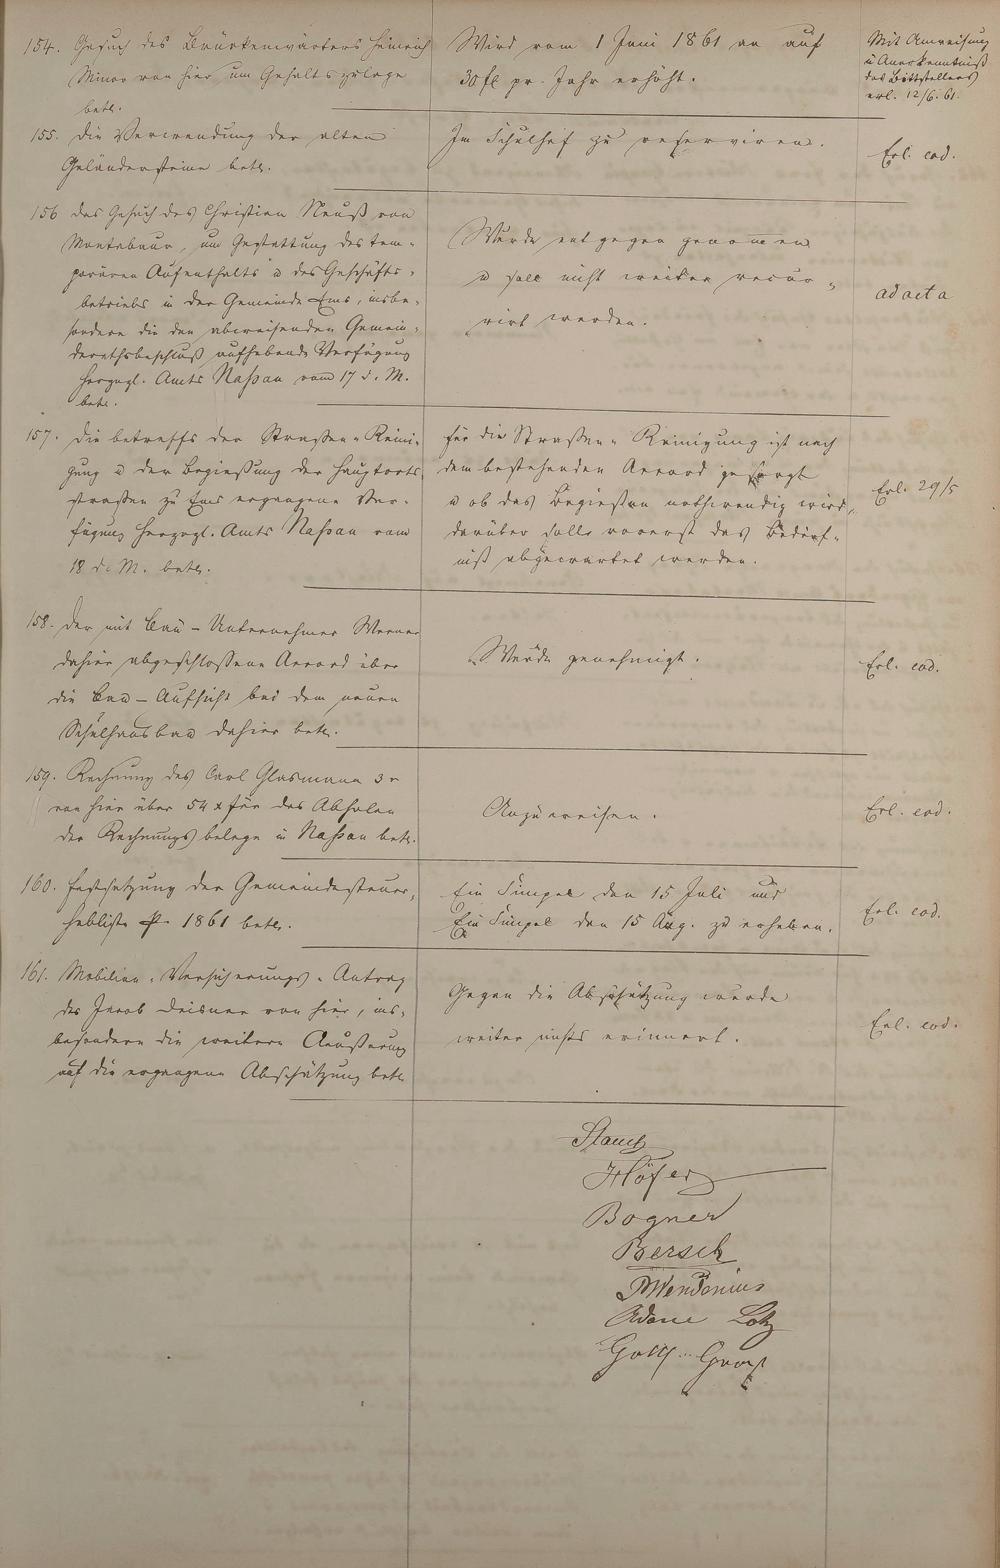 154. Gesuch des Brückenwärters Heinrich
Minor von hier um Gehaltszulage
betr.
Wird vom 1 Juni 1861 an auf
30 fl pr. Jahr erhöht.
Mit Anweisung
u Anerkenntniß
des Bittstellers
erl. 12/6. 61.
155. Die Verwendung der alten
Geländersteine betr.
Im Schulhof zu reserviren.
Erl. eod.
156 Das Gesuch des Christian Neuß von
Montabaur, um Gestattung des tem-
porären Aufenthalts u des Geschäfts-
betriebs in der Gemeinde Ems, insbe-
sondere die den abweisenden Gemein-
derathsbeschluß aufhebende Verfügung
Herzogl. Amts Nassau vom 17 d. M.
betr.
Wurde entgegen genommen
u soll nicht weiter recur-
rirt werden.
ad acta
157. Die betreffs der Straßen-Reini-
gung u der Begießung der Hauptorts-
straßen zu Ems ergangene Ver-
fügung Herzogl. Amts Nassau vom
18 d. M. betr.
Für die Straßen-Reinigung ist nach
dem bestehenden Accord gesorgt
u ob das Begießen nothwendig wird,
darüber solle vorerst das Bedürf-
niß abgewartet werden.
Erl. 29/5
158. Der mit Bau-Unternehmer Werner
dahier abgeschlossene Accord über
die Bau-Aufsicht bei dem neuen
Schulhausbau dahier betr.
Wurde genehmigt.
Erl. eod.
159. Rechnung des Carl Glasmann 3r
von hier über 54 x für das Abholen
der Rechnungsbelege in Nassau betr.
Anzuweisen.
Erl. eod.
160. Festsetzung der Gemeindesteuer-
hebliste pr 1861 betr.
Ein Simpel den 15 Juli und
Ein Simpel den 15 Aug. zu erheben.
Erl. eod.
161. Mobilien-Versicherungs-Antrag
des Jacob Deisner von hier, ins-
besondere die weitere Äußerung
auf die ergangene Abschätzung betr.
Gegen die Abschätzung wurde
weiter nichts erinnert.
Erl. eod.
Höfer
Bogner
Bersch
Adam Lotz